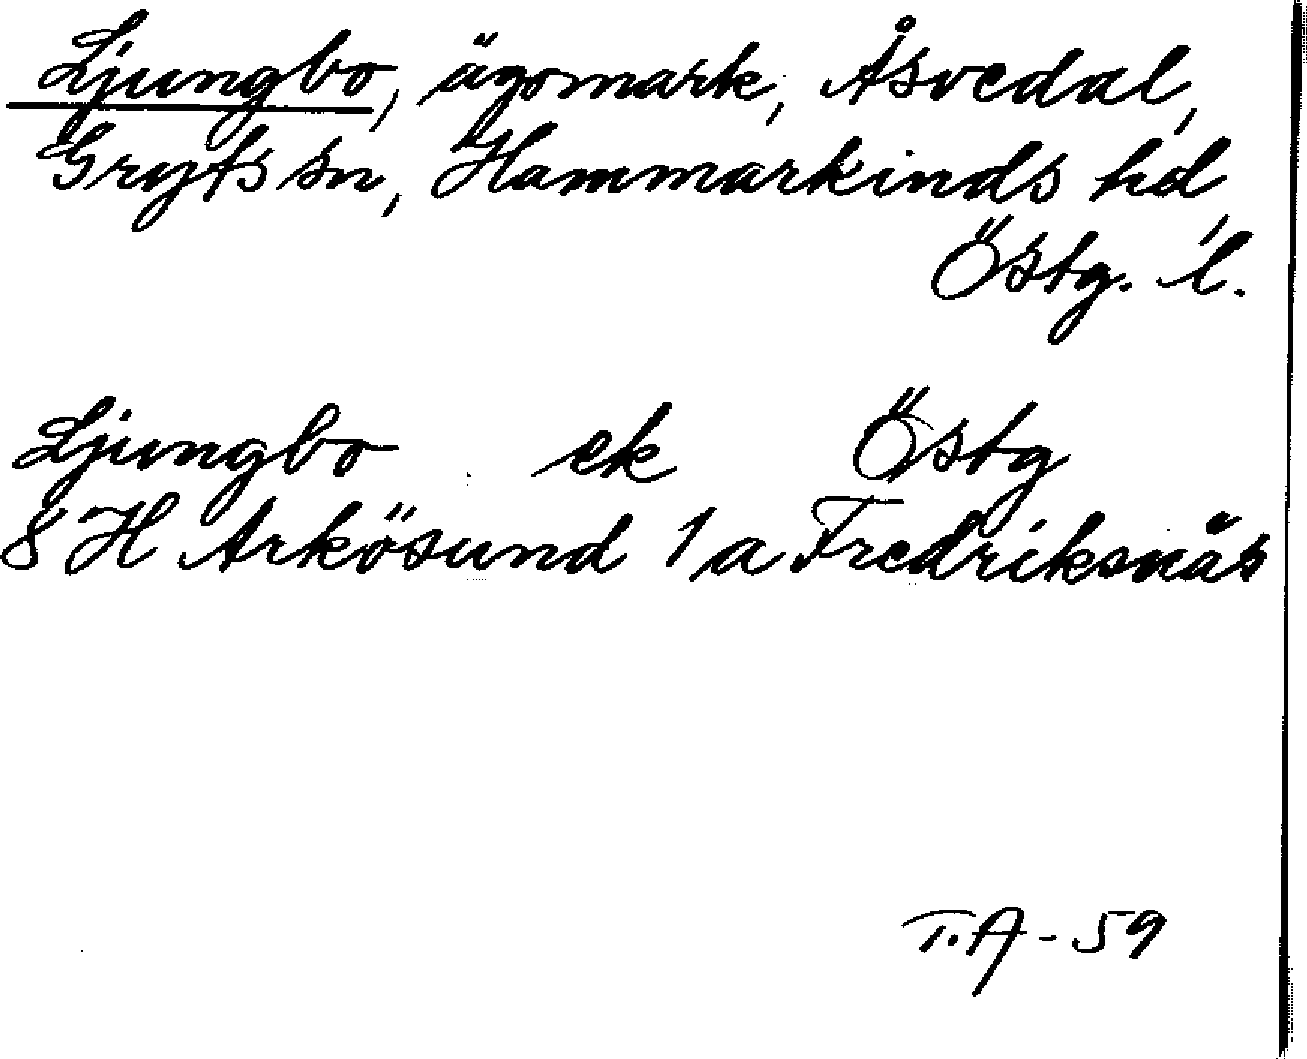 Ljungbo, ägomark, Åsvedal,
Gryts sn, Hammarkinds hd,
Östg. l.
Ljungbo ek Östg
8 H Arkösund 1 a Fredriksnäs
T.A - 59